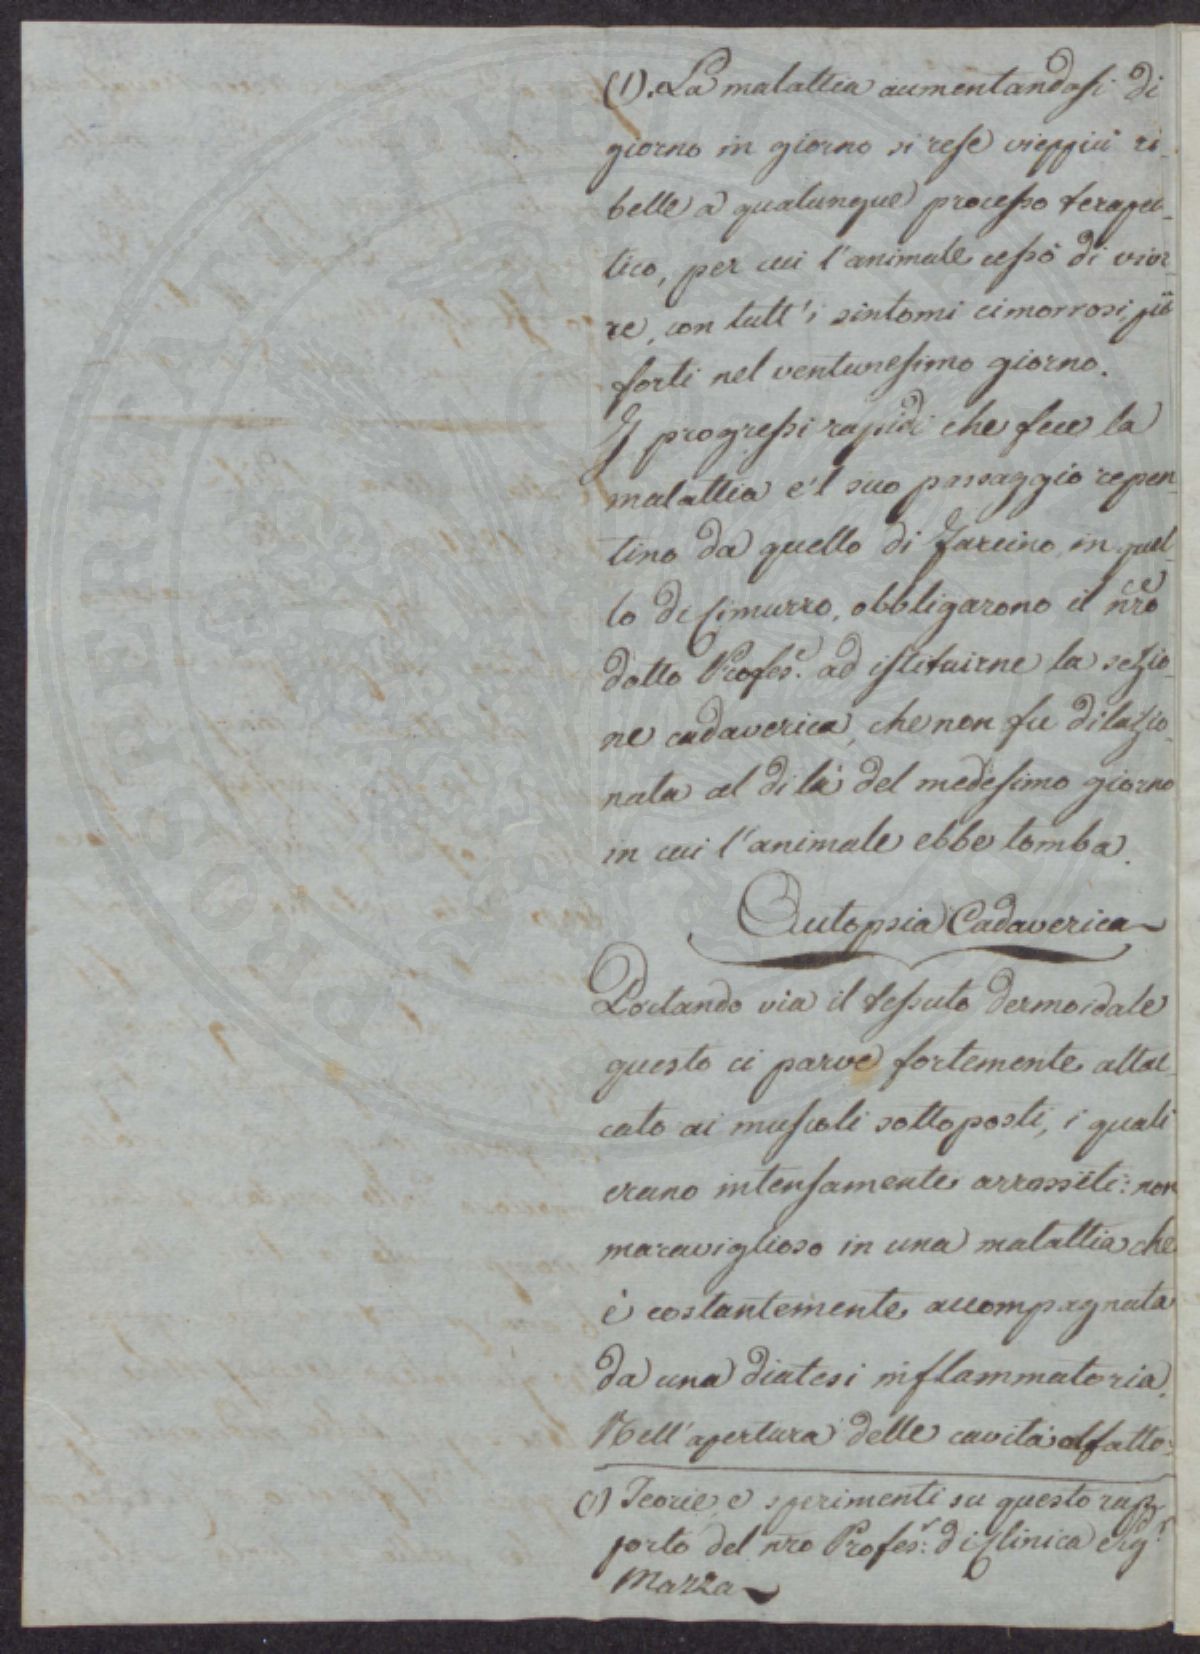 (1). La malattia aumentandosi di
giorno in giorno si rese vieppiù ri-
belle a qualunque processo terapeu-
tico, per cui l'animale cessò di vive-
re, con tutt'i sintomi cimorrosi più
forti nel ventunesimo giorno.
I progressi rapidi che fece la
malattia e'l suo passaggio repen-
tino da quello di Farcino in quel-
lo di Cimurro, obbligarono il nro
dotto Profes.r ad istituirne la sezio-
ne cadaverica, che non fu dilazio-
nata al di là del medesimo giorno
in cui l'animale ebbe tomba.
Autopsia Cadaverica
Portando via il tessuto dermoidale
questo ci parve fortemente attac-
cato ai muscoli sottoposti, i quali
erano intensamente arrossiti: non
maraviglioso in una malattia che
è costantemente accompagnata
da una diatesi inflammatoria.
Nell'apertura delle cavità olfatto-
(1) Teorie e sperimenti su questo rap-
porto del nro Profes.r di Clinica Sig.r
Mazza
PROSPERITATI PUBLICAE